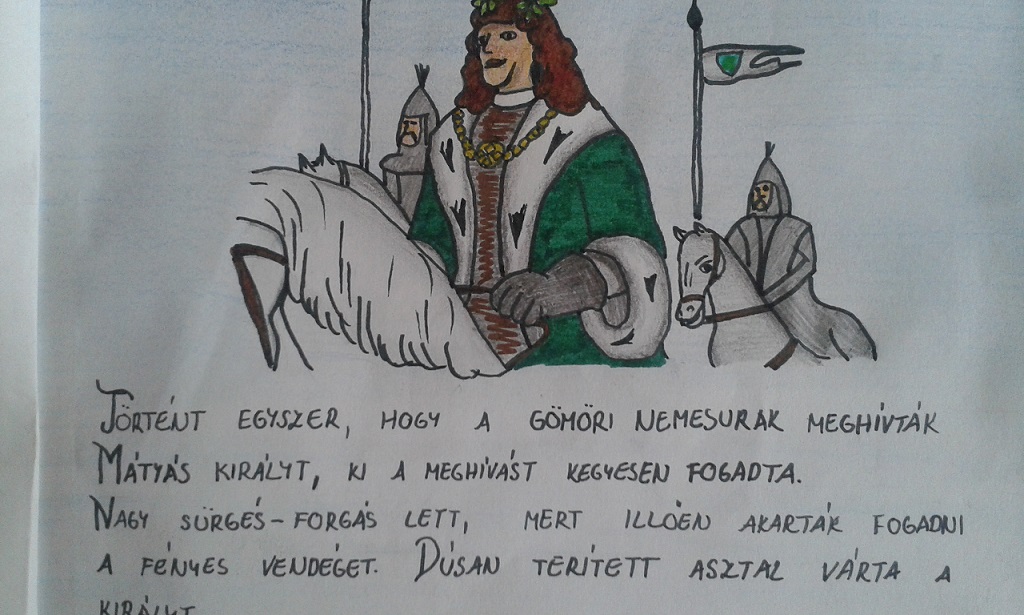 TÖRTÉNT EGYSZER, HOGY A GÖMÖRI NEMESURAK MEGHÍVTÁK
MÁTYÁS KIRÁLYT, KI A MEGHÍVÁST KEGYESEN FOGADTA.
NAGY SÜRGÉS-FORGÁS LETT, MERT ILLŐEN AKARTÁK FOGADNI
A FÉNYES VENDÉGET. DÚSAN TERÍTETT ASZTAL VÁRTA A
KIRÁLYT